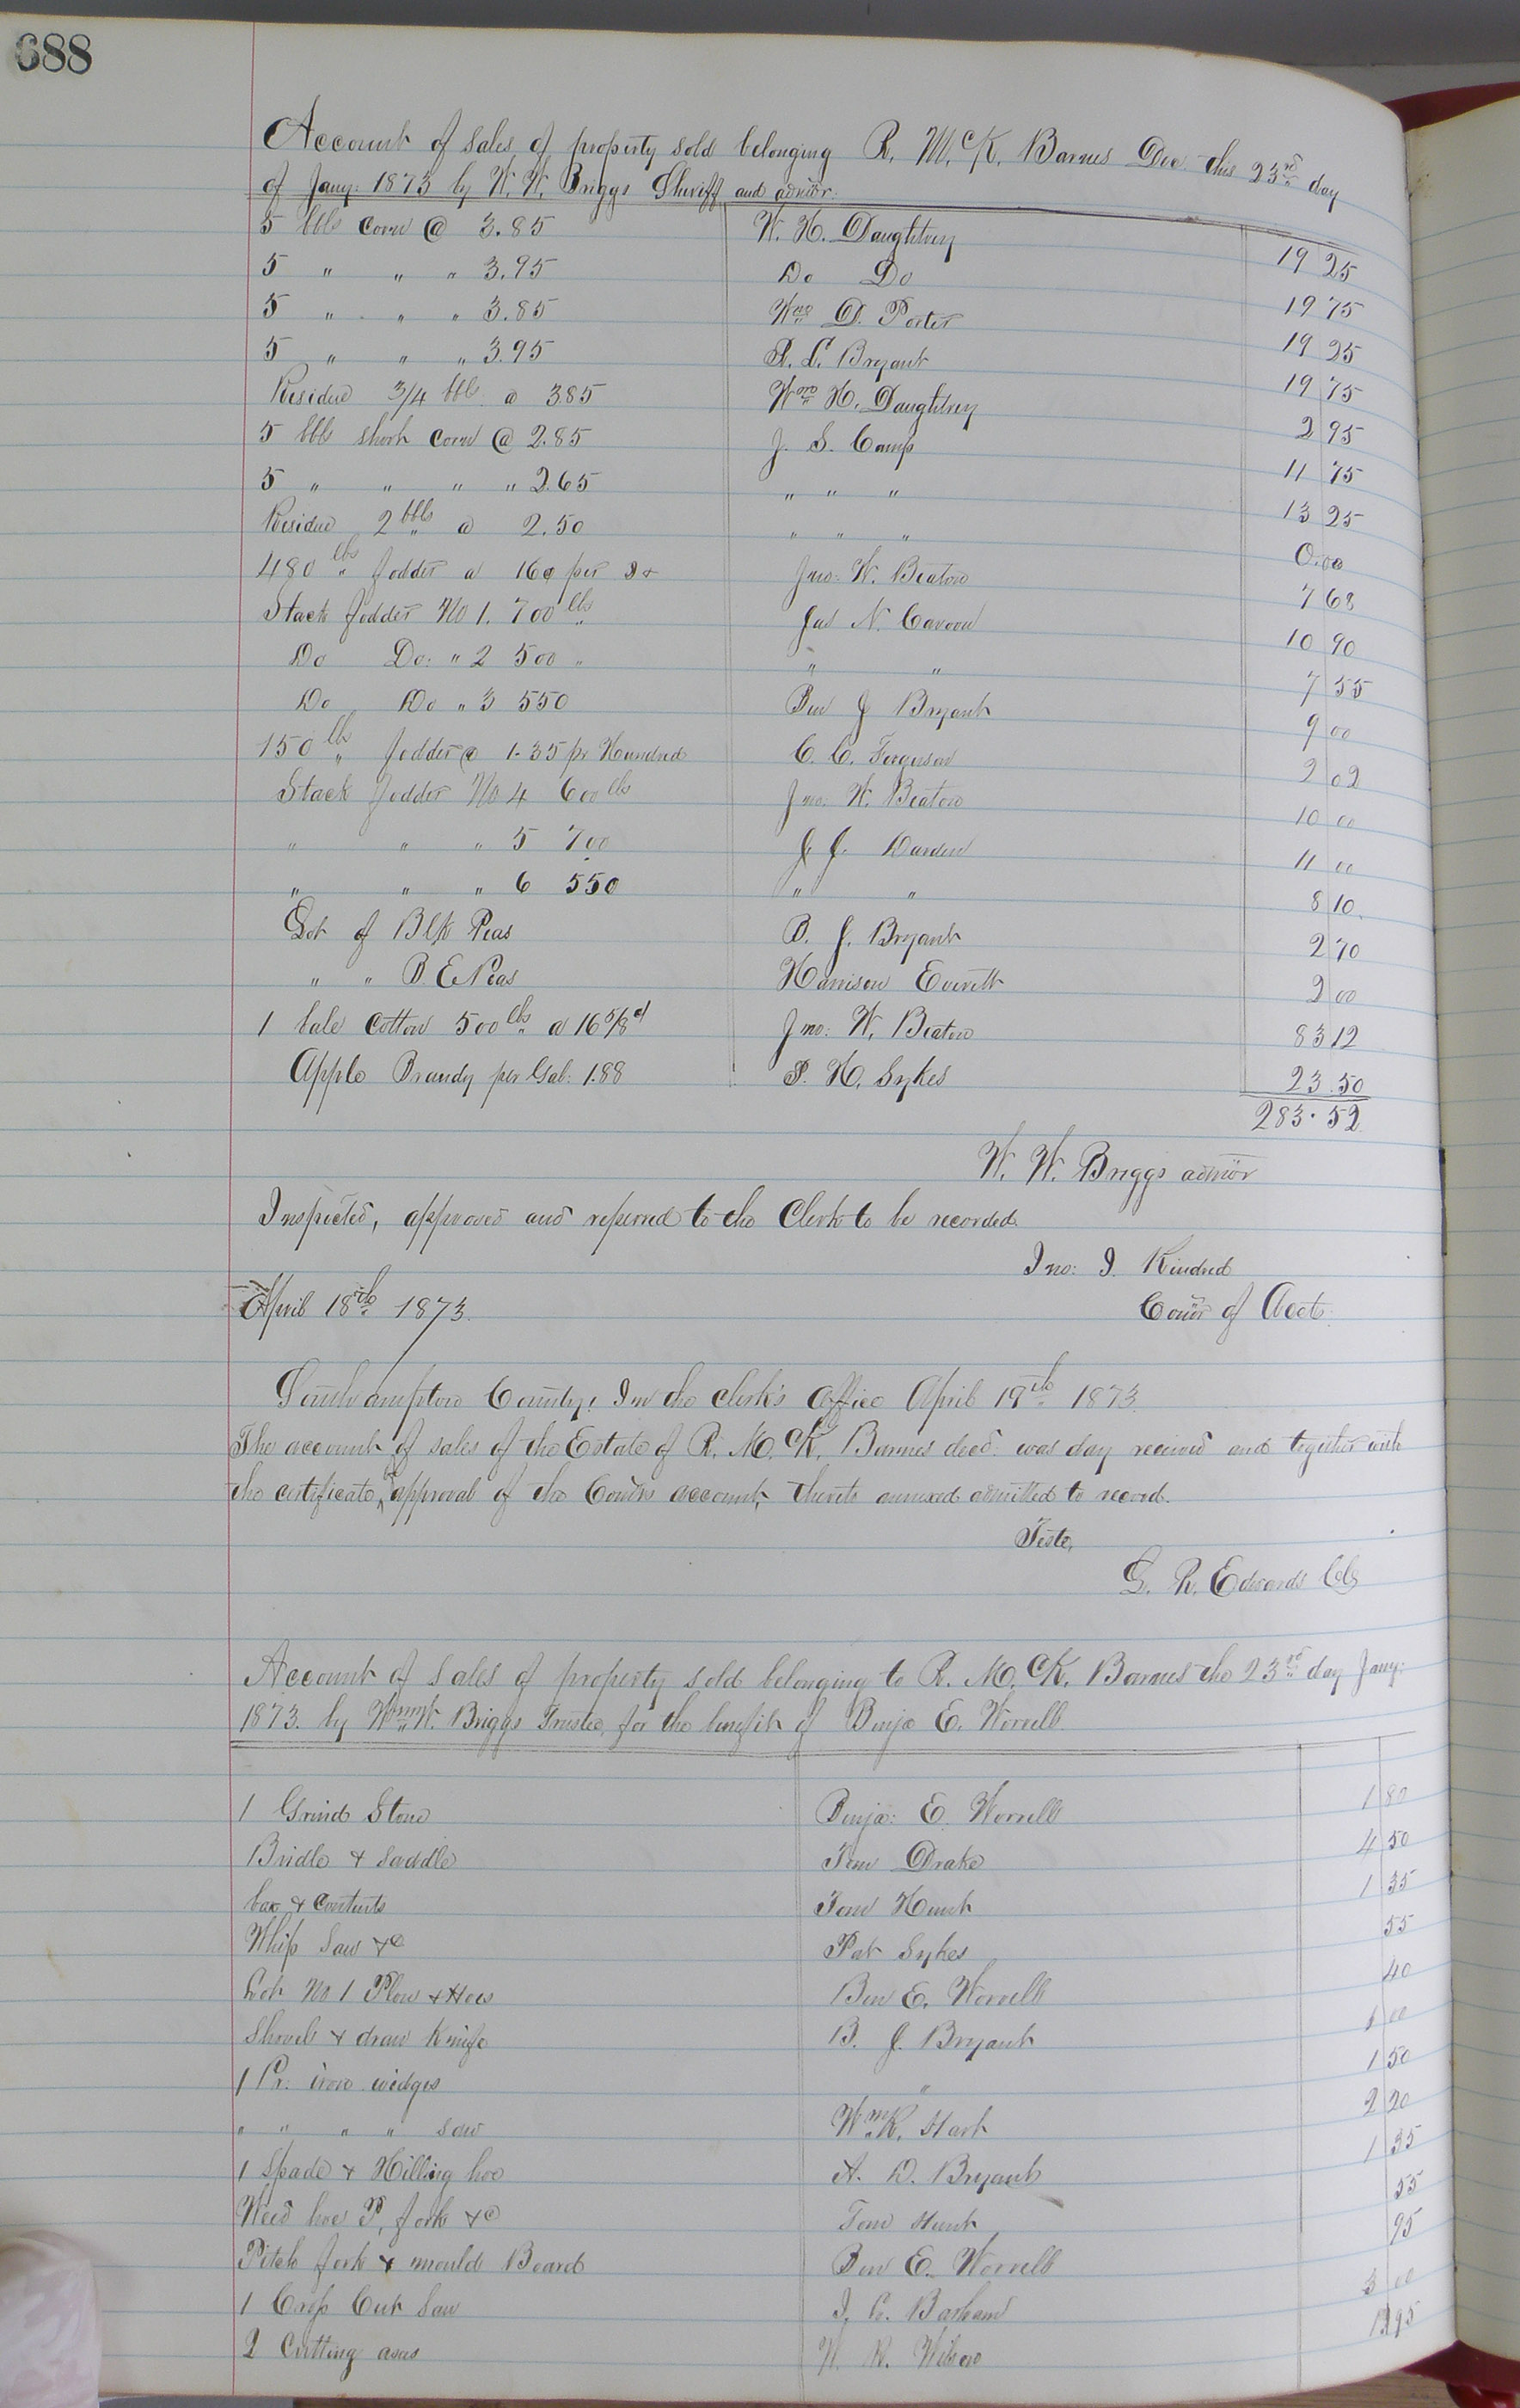 688
Account of sales of property sold belonging R. McK. Barnes Dec. this 23rd day
of Jany: 1873 by W. W. Briggs Sheriff and admor.
5 bbls corn @ 3.85 W. H. Daughtrey 19 25
5 " " " 3.95 Do Do 19 75
5 " " " 3.85 Wm D. Porter 19 25
5 " " " 3.95 R. L. Bryant 19 75
Residue 3/4 bbl. @ 385 Wm H. Daughtrey 2 95
5 bbls short corn @ 2.85 J. S. Camp 11 75
5 " " " " 2.65 " " " 13 25
Residue 2 bbls @ 2.50 " " " 0.00
480 lbs fodder a 16¢ per Jno: W. Beaton 7 68
Stack fodder No 1. 700 lbs Jas N. 10 90
Do Do: " 2 500 " " " 7 55
Do Do " 3 550 Ben J Bryant 9 00
150 lb fodder @ 1.35 pr Hundred C. C. Ferguson 2 02
Stack fodder No 4 600 lbs Jno: W. Beaton 10 00
" " " 5 700 J. J. Darden 11 00
" " " 6 550 " " 8 10
Lot of Blk Peas B. J. Bryant 2 70
" " B. E Peas Harrison Everett 2 00
1 bale cotton 500 lbs a 16 5/8 cts Jno: W. Beaton 83 12
Apple Brandy per Gal: 1.88 P. H. Sykes 23.50
283.52
W. W. Briggs admor
Inspected, approved and referred to the Clerk to be recorded.
Jno: J. Kindred
April 18th 1873. Comr of Accts.
Southampton County: In the clerk's office April 19th 1873.
The account of sales of the Estate of R. McK. Barnes decd. was day received and together with
the certificate of approval of the Comrs account, thereto annexed admitted to record.
Teste,
L. R. Edwards Clk
Account of sales of property sold belonging to R. McK. Barnes the 23rd day Jany:
1873. by Wm W. Briggs Trustee, for the benefit of Benja E. Worrell
1 Grind Stone Benja: E. Worrell 1 80
Bridle & Saddle Tom Drake 4 50
box & contents Tom Hunt 1 35
Whip Saw &c Pat Sykes 55
Lot No 1 Plow & Hoes Ben E. Worrell 40
Shovels & draw Knife B. J. Bryant 1 00
1 Pr. iron wedges " 1 50
" " " " saw Wm R. Hart 2 20
1 Spade & Hilling hoe A. D. Bryant 1 35
Weed hoe P, fork &c Tom Hunt 55
Pitch fork & mould Board Ben E. Worrell 95
1 Cross Cut Saw J. Barham 3 00
2 Cutting axes 1 95